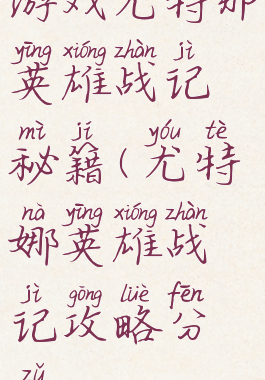 游戏尤特娜
yīng xióng zhàn jì
英雄战记
mì jí yóu tè
秘籍(尤特
nà yīng xióng zhàn
娜英雄战
jì gōng lüè fēn
记攻略分
zǔ